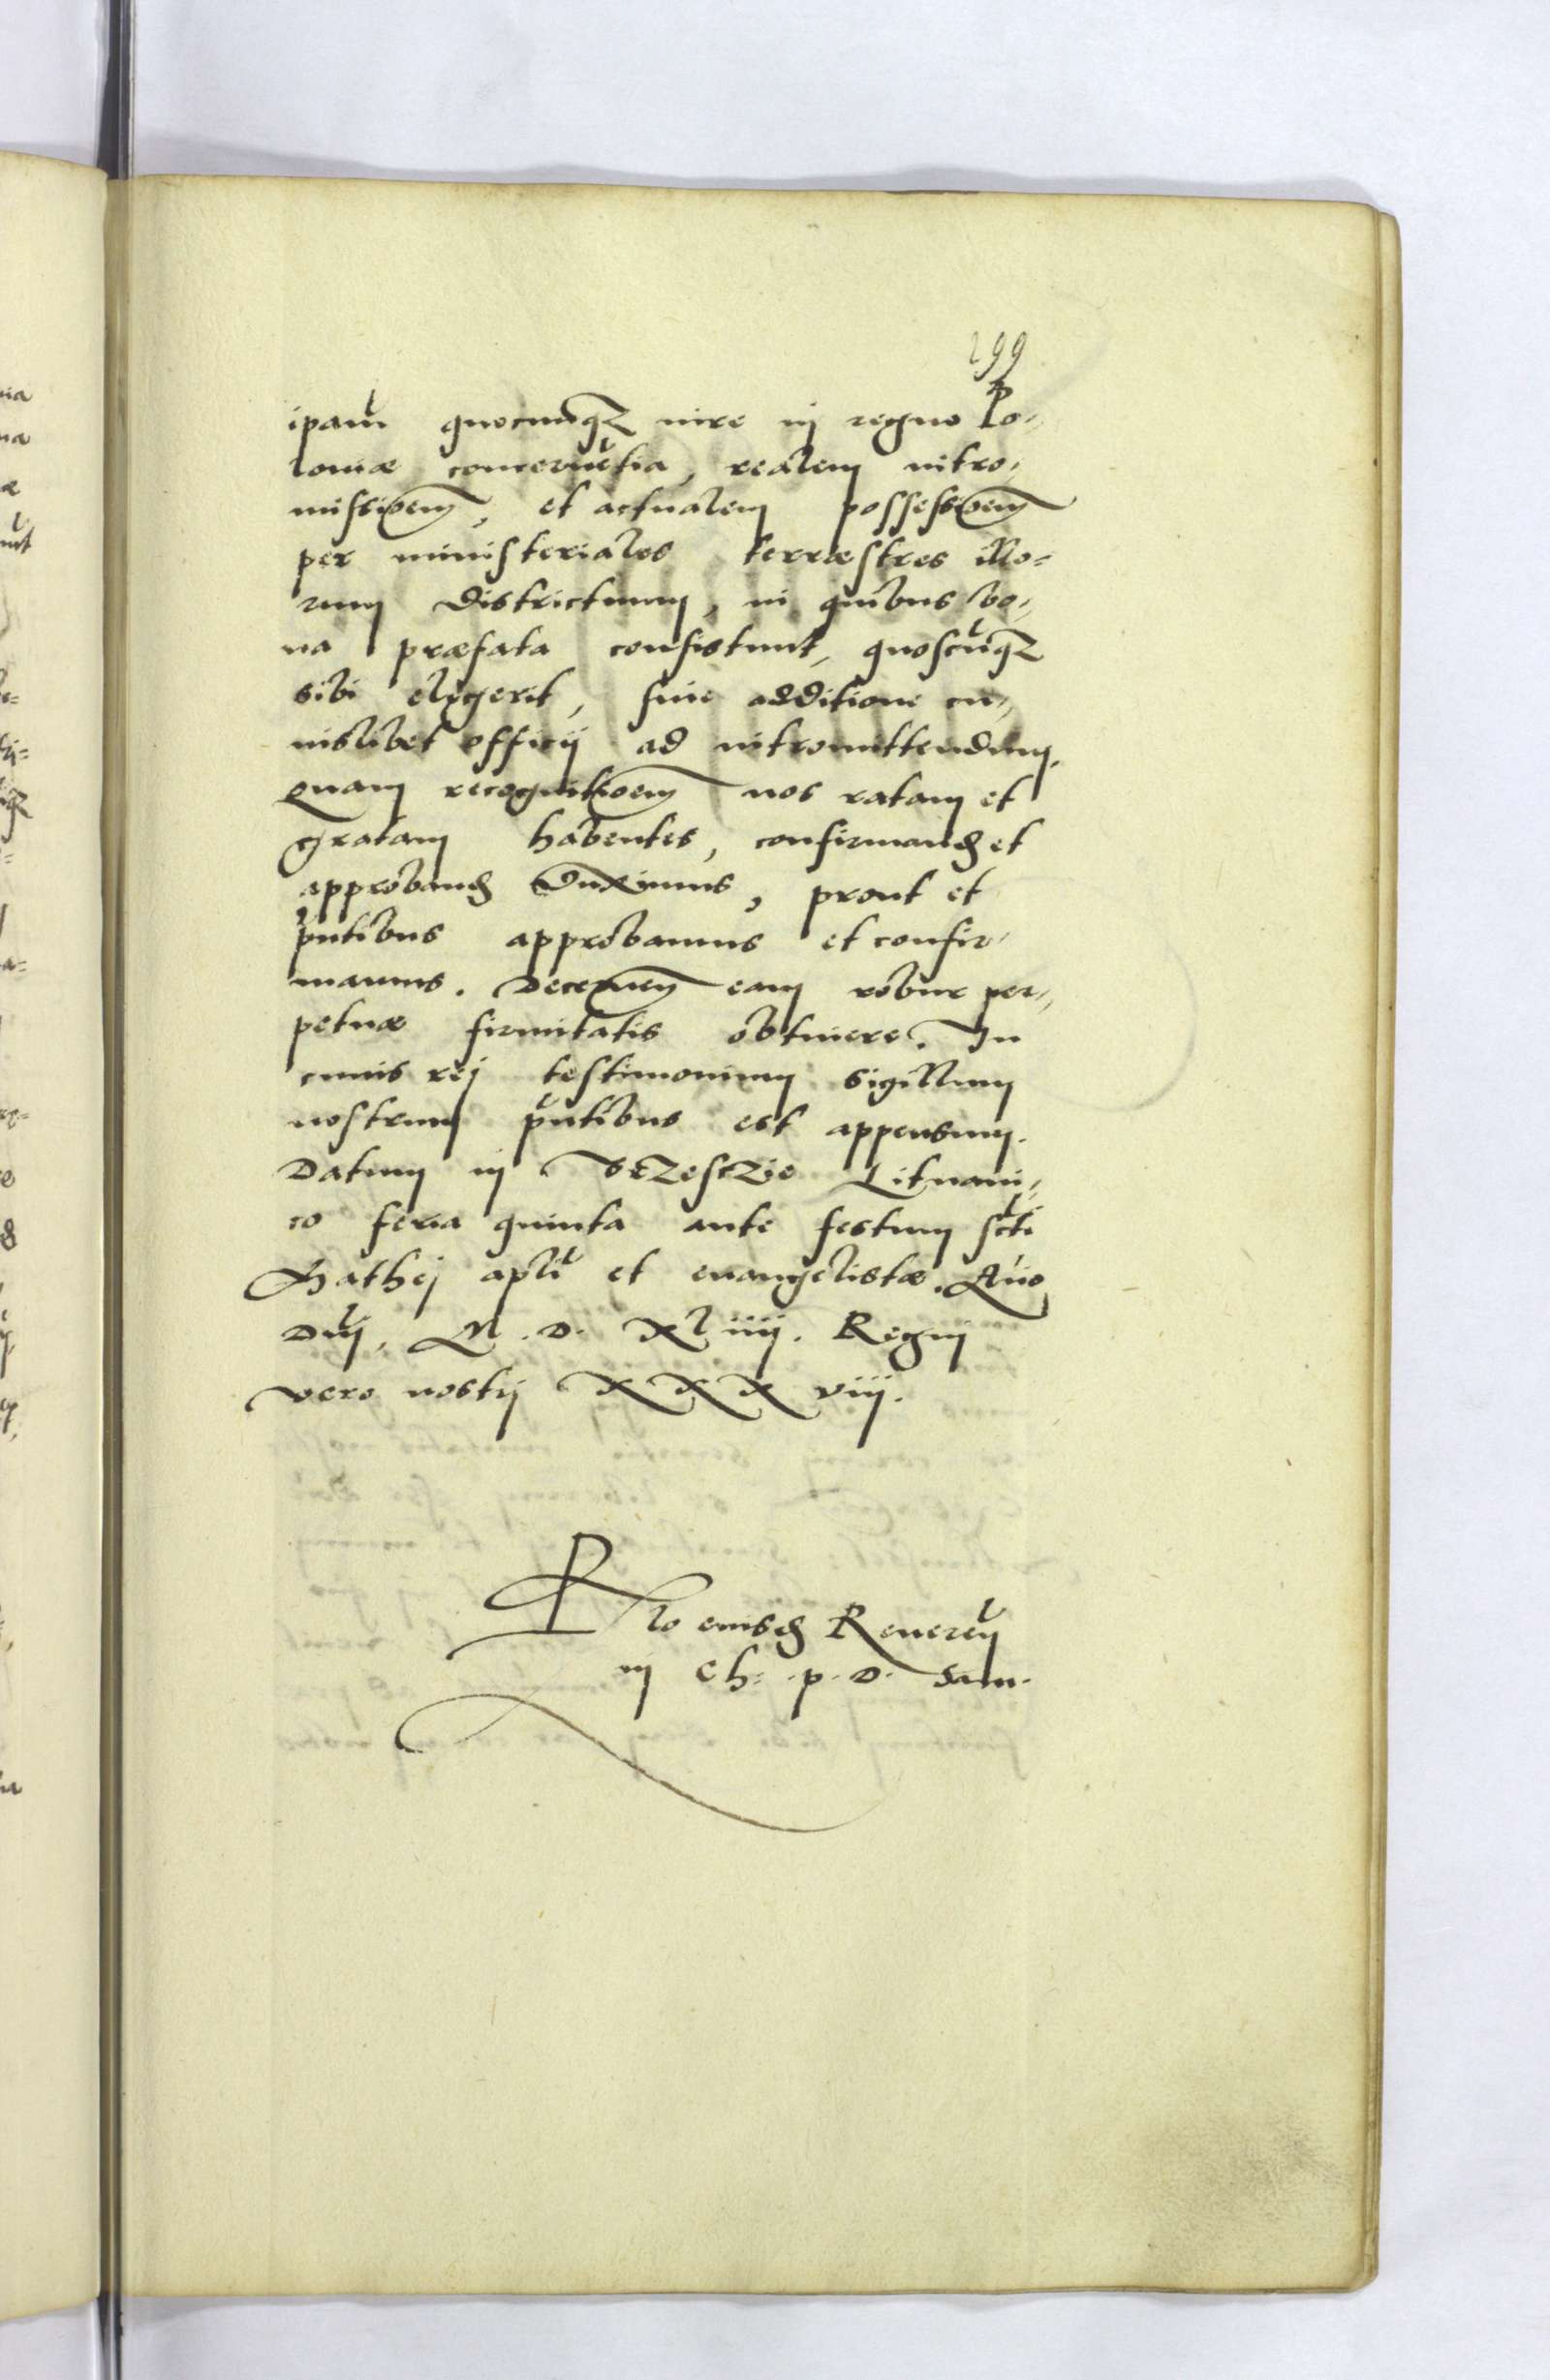 199
ipam̃ quocunqꝫ iure in regno Po-
loniæ concerneñtia, realem intro-
missioem, et actualem possessioem
per ministeriales terræstres illo-
rum districtuum, in quibus bo-
na præfata consistunt, quoscũqꝫ
sibi elegerit, sine additione cu-
iuslibet officij ad intromittendum.
Quam recognitioem nos ratam et
gratam habentes, confirmand et
approband duximus, prout et
p̃ntibus approbamus et confir-
mamus. Decernen eam robur per-
petuæ firmitatis obtinere. In
cuius rej testimonium sigillum
nostrum p̃ntibus est appensum.
Datum in Brzesczie Lituani-
co feria quinta ante festum sc̃ti
Mathej apl̃i et euangelistæ. Año
Dñj, M. D. XLiiij. Regnj
vero nostrj XXX viij.
R̃lo eiusd Reueren̄
in Ch: p. D. Sam.